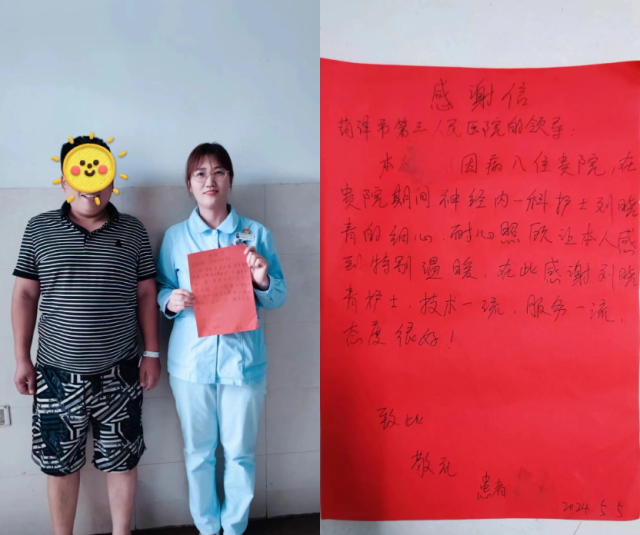 感谢信
菏泽市第三人民医院的领导:
本 因病入住贵院,在
贵院期间神经内一科护士刘晓
青的细心,耐心照顾让本人感
到特别温暖,在此感谢刘晓
青护士,技术一流,服务一流,
态度很好!
致此
敬礼
患者
2024.5.5